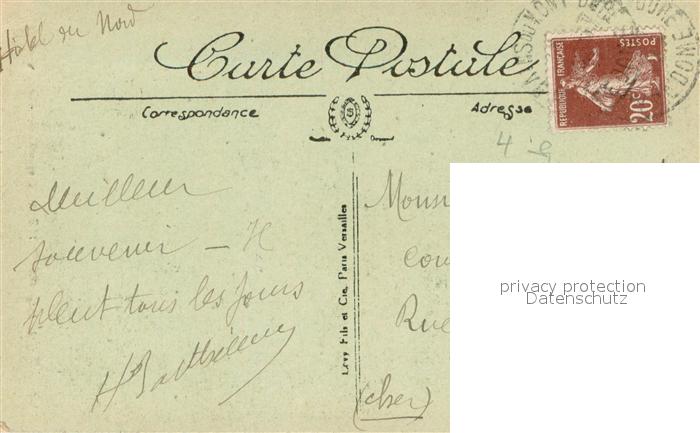 Hôtel du Nord
Carte Postale
Correspondance
Adresse
REPUBLIQUE FRANÇAISE
POSTES
20c
4
Meilleur
souvenir – Il
pleut tous les jours
H Barthélemy
Lévy Fils et Cie, Paris Versailles
Rue
(cher)
privacy protection
Datenschutz